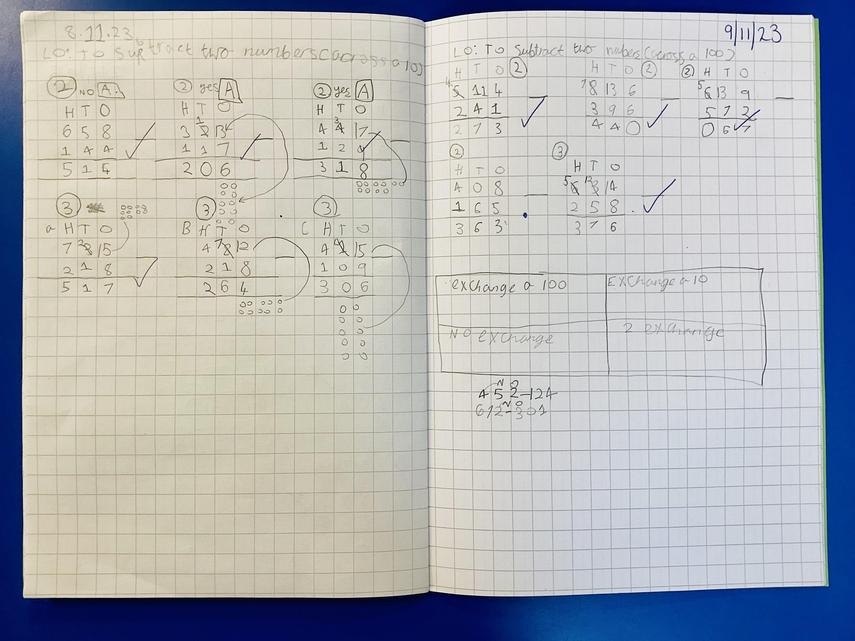 8.11.23
LO: TO Subtract two numbers (across a 10)
2 NO A
H T O
6 5 8
1 4 4
5 1 4
2 yes A
H T O
1
3 2 13
1 1 7
2 0 6
2 yes A
H T O
3
4 4 17
1 2 9
3 1 8
3
a H T O
7 2 3 15
2 1 8
5 1 7
3
B H T O
4 7 8 12
2 1 8
2 6 4
3
C H T O
4 1 15
1 0 9
3 0 6
9/11/23
LO: TO Subtract two numbers (across a 100)
H T O 2
4 5 11 4
2 4 1
2 7 3
H T O 2
7 8 13 6
3 9 6
4 4 0
2 H T O
5 6 13 9
5 7 2
0 6 7
2
H T O
4 0 8
1 6 5
3 6 3
3
H T O
5 6 12 3 14
2 5 8
3 7 6
exchange a 100
Exchange a 10
NO exchange
2 exchange
NO
452-124
NO
612-301